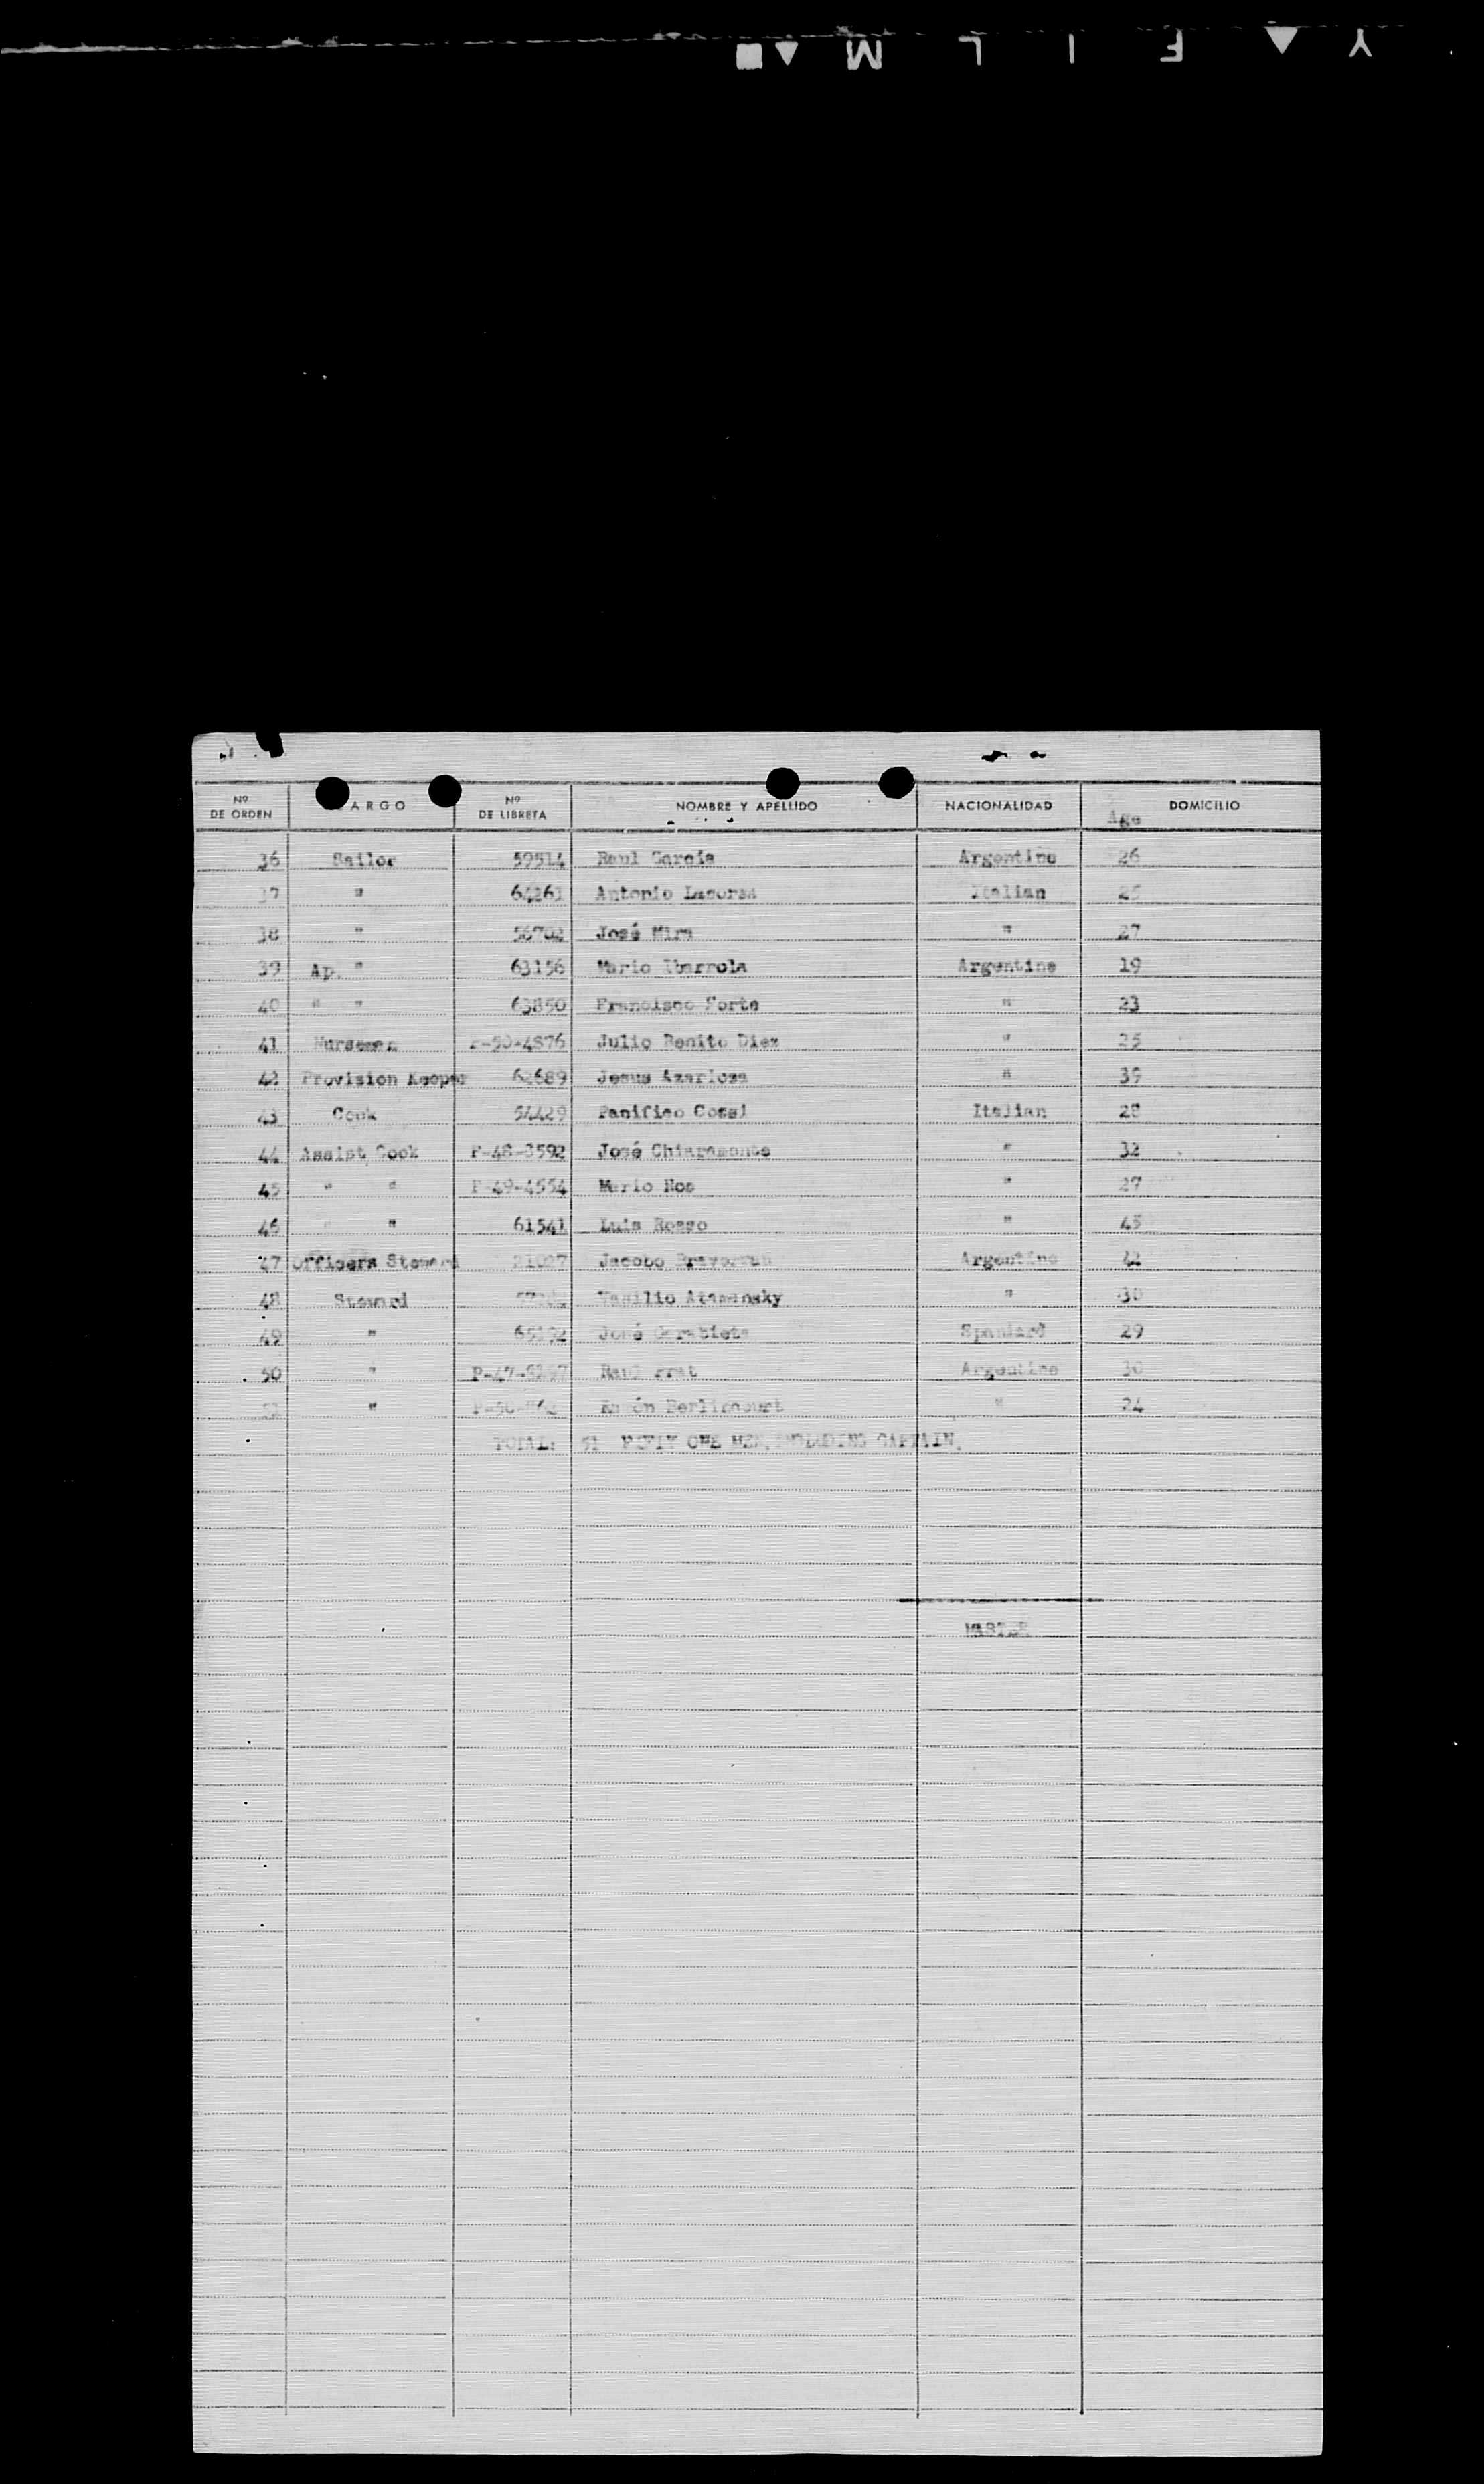 Nº DE ORDEN ARGO Nº DE LIBRETA NOMBRE Y APELLIDO NACIONALIDAD Age DOMICILIO
36 Sailor 59514 Raul García Argentine 26
37 " 64261 Antonio Italian 25
38 " 56702 José Mira " 27
39 Ap. " 63156 Mario Ibarrola Argentine 19
40 " " 63850 Francisco Forte " 23
41 Nurseman P-50-4876 Julio Benito Diez " 25
42 Provision Keeper 62689 Jesus Azarloza " 39
43 Cook 54429 Panifico Cossi Italian 28
44 Assist Cook P-48-3592 José Chiaramonte " 32
45 " " P-49-4554 Mario Ros " 27
46 " " 61541 Luis Rosso " 45
47 Officers Steward 21027 Jacobo Argentine 42
48 Steward Vasilio Atamensky " 30
49 " José Spaniard 29
50 " Raul Prat Argentine 30
51 " Ramón Berlincourt " 24
TOTAL: 51 FIFTY ONE MEN, INCLUDING CAPTAIN.
MASTER